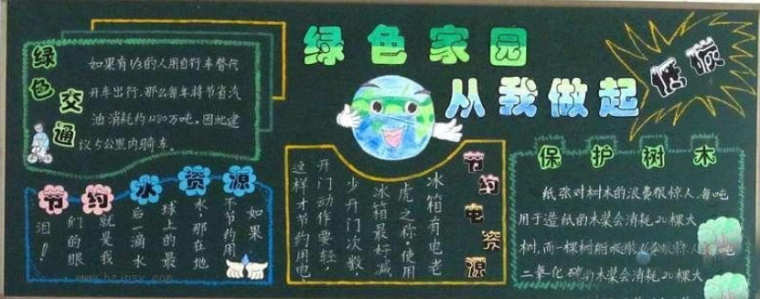 绿色家园
从我做起
低碳
绿色交通
如果有1/3的人用自行车替代
开车出行,那么每年将节省汽
油消耗约1280万吨。因此建
议5公里内骑车。
节约水资源
如果
不节约用
水,那在地
球上的最
后一滴水
就是我
们的眼
泪!!
节约电资源
冰箱有电老
虎之称,使用
冰箱最好减
少开门次数
开门动作要轻,
这样才节约用电
保护树木
纸张对树木的浪费很惊人,每吨
用于造纸的木浆会消耗20棵大
树,而一棵树
二氧化碳的木浆会消耗20棵大